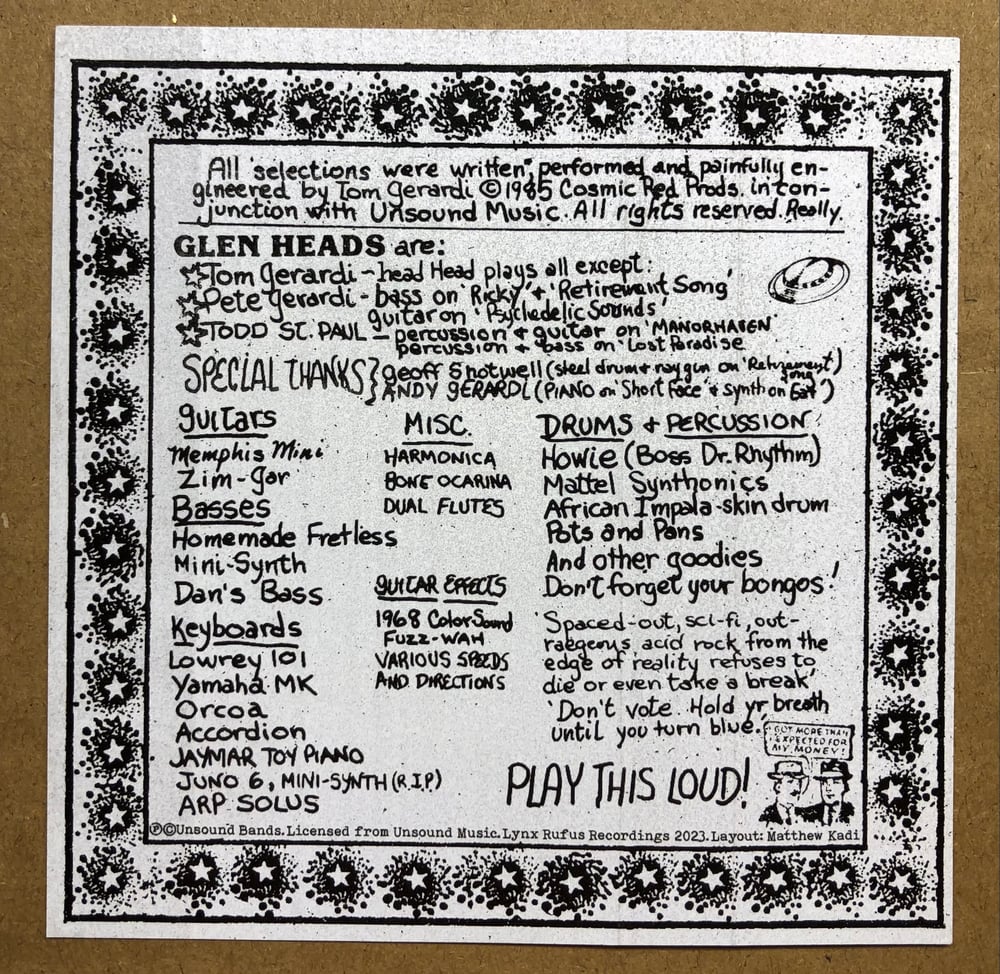 All 'selections were written', performed and painfully en-
gineered by Tom Gerardi © 1985 Cosmic Red Prods. in con-
junction with Unsound Music. All rights reserved. Really.
GLEN HEADS are:
Tom Gerardi - head Head plays all except:
Pete Gerardi - bass on 'Ricky' + 'Retirement Song'
guitar on 'Psychedelic Sounds'
TODD ST. PAUL - percussion + guitar on 'MANORHAVEN'
percussion + bass on 'Lost Paradise
SPECIAL THANKS }
Geoff Shotwell (steel drum + raygun on 'Retirement Song')
ANDY GERARDI (PIANO on 'Short Face' + Synth on 'Eat')
guitars
Memphis Mini
Zim-Gar
Basses
Homemade Fretless
Mini-Synth
Dan's Bass
Keyboards
Lowrey 101
Yamaha MK
Orcoa
Accordion
JAYMAR TOY PIANO
JUNO 6, MINI-SYNTH (R.I.P.)
ARP SOLUS
MISC.
HARMONICA
BONE OCARINA
DUAL FLUTES
GUITAR EFFECTS
1968 ColorSound
FUZZ-WAH
VARIOUS SPEEDS
AND DIRECTIONS
DRUMS + PERCUSSION
Howie (Boss Dr. Rhythm)
Mattel Synthonics
African Impala-skin drum
Pots and Pans
And other goodies
Don't forget your bongos!
'Spaced-out, sci-fi, out-
raegeous acid rock from the
edge of reality refuses to
die or even take a break'
'Don't vote. Hold yr breath
until you turn blue.'
I GOT MORE THAN
I EXPECTED FOR
MY MONEY!
PLAY THIS LOUD!
℗©Unsound Bands. Licensed from Unsound Music. Lynx Rufus Recordings 2023. Layout: Matthew Kadi